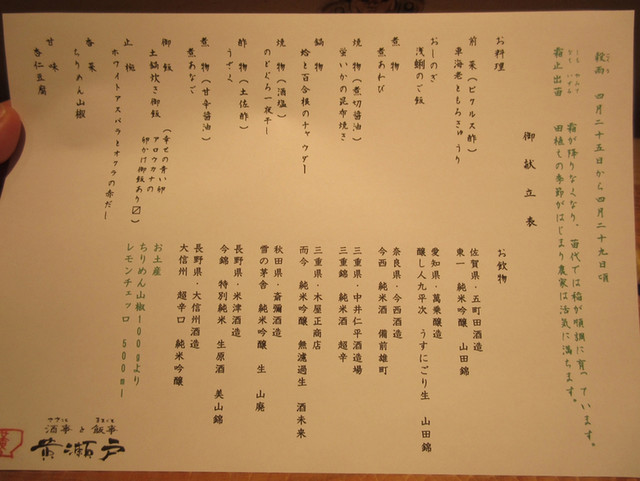 穀雨　四月二十五日から四月二十九日頃
しも やんで
霜止出苗　霜が降りなくなり、苗代では稲が順調に育っています。
田植えの季節がはじまり農家は活気に満ちます。
御献立表
お料理
前菜（ピクルス酢）
車海老ともろきゅうり
おしのぎ
浅蜊のご飯
煮物
煮あわび
焼物（煮切醤油）
蛍いかの昆布焼き
鍋物
蛤と百合根のチャウダー
焼物（酒塩）
のどぐろ一夜干し
酢物（土佐酢）
うざく
煮物（甘辛醤油）
煮あなご
御飯
土鍋炊き御飯
（幸せの青い卵
アロウカナの
卵かけ御飯あり〼）
止椀
ホワイトアスパラとオクラの赤だし
香菜
ちりめん山椒
甘味
杏仁豆腐
お飲物
佐賀県・五町田酒造
東一　純米吟醸　山田錦
愛知県・萬乗醸造
醸し人九平次　うすにごり生　山田錦
奈良県・今西酒造
今西　純米酒　備前雄町
三重県・中井仁平酒造場
三重錦　純米酒　超辛
三重県・木屋正商店
而今　純米吟醸　無濾過生　酒未来
秋田県・斎彌酒造
雪の茅舎　純米吟醸　生　山廃
長野県・米津酒造
今錦　特別純米　生原酒　美山錦
長野県・大信州酒造
大信州　超辛口　純米吟醸
お土産
ちりめん山椒100gより
レモンチェッロ　500ml
酒事と飯事
黄瀬戸